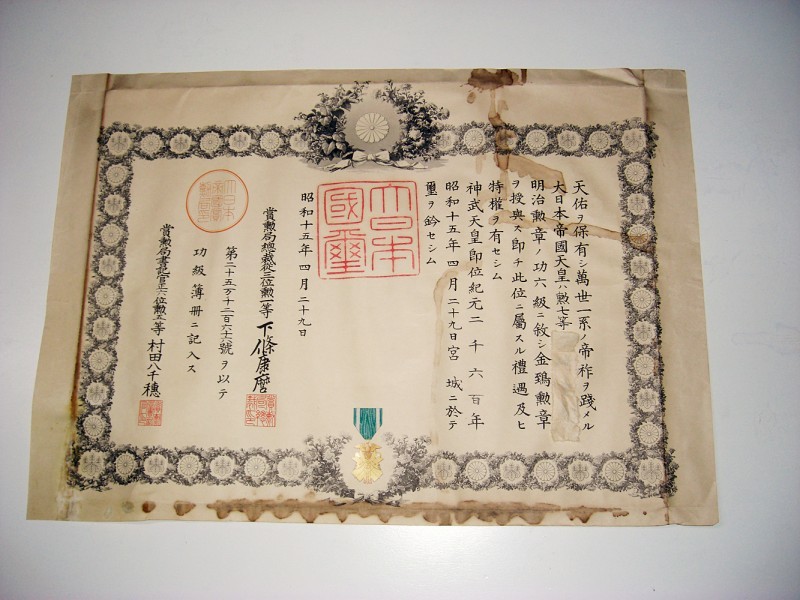 天佑ヲ保有シ萬世一系ノ帝祚ヲ踐メル
大日本帝國天皇ハ勲七等
明治勲章ノ功六級ニ敘シ金鵄勲章
ヲ授與ス即チ此位ニ屬スル禮遇及ヒ
特權ヲ有セシム
神武天皇即位紀元二千六百年
昭和十五年四月二十九日宮城ニ於テ
璽ヲ鈐セシム
大日本
國璽
昭和十五年四月二十九日
賞勲局總裁從三位勲一等下條康麿
第二十五万十二百六十六號ヲ以テ
功級簿册ニ記入ス
賞勲局書記官正六位勲五等村田八千穗